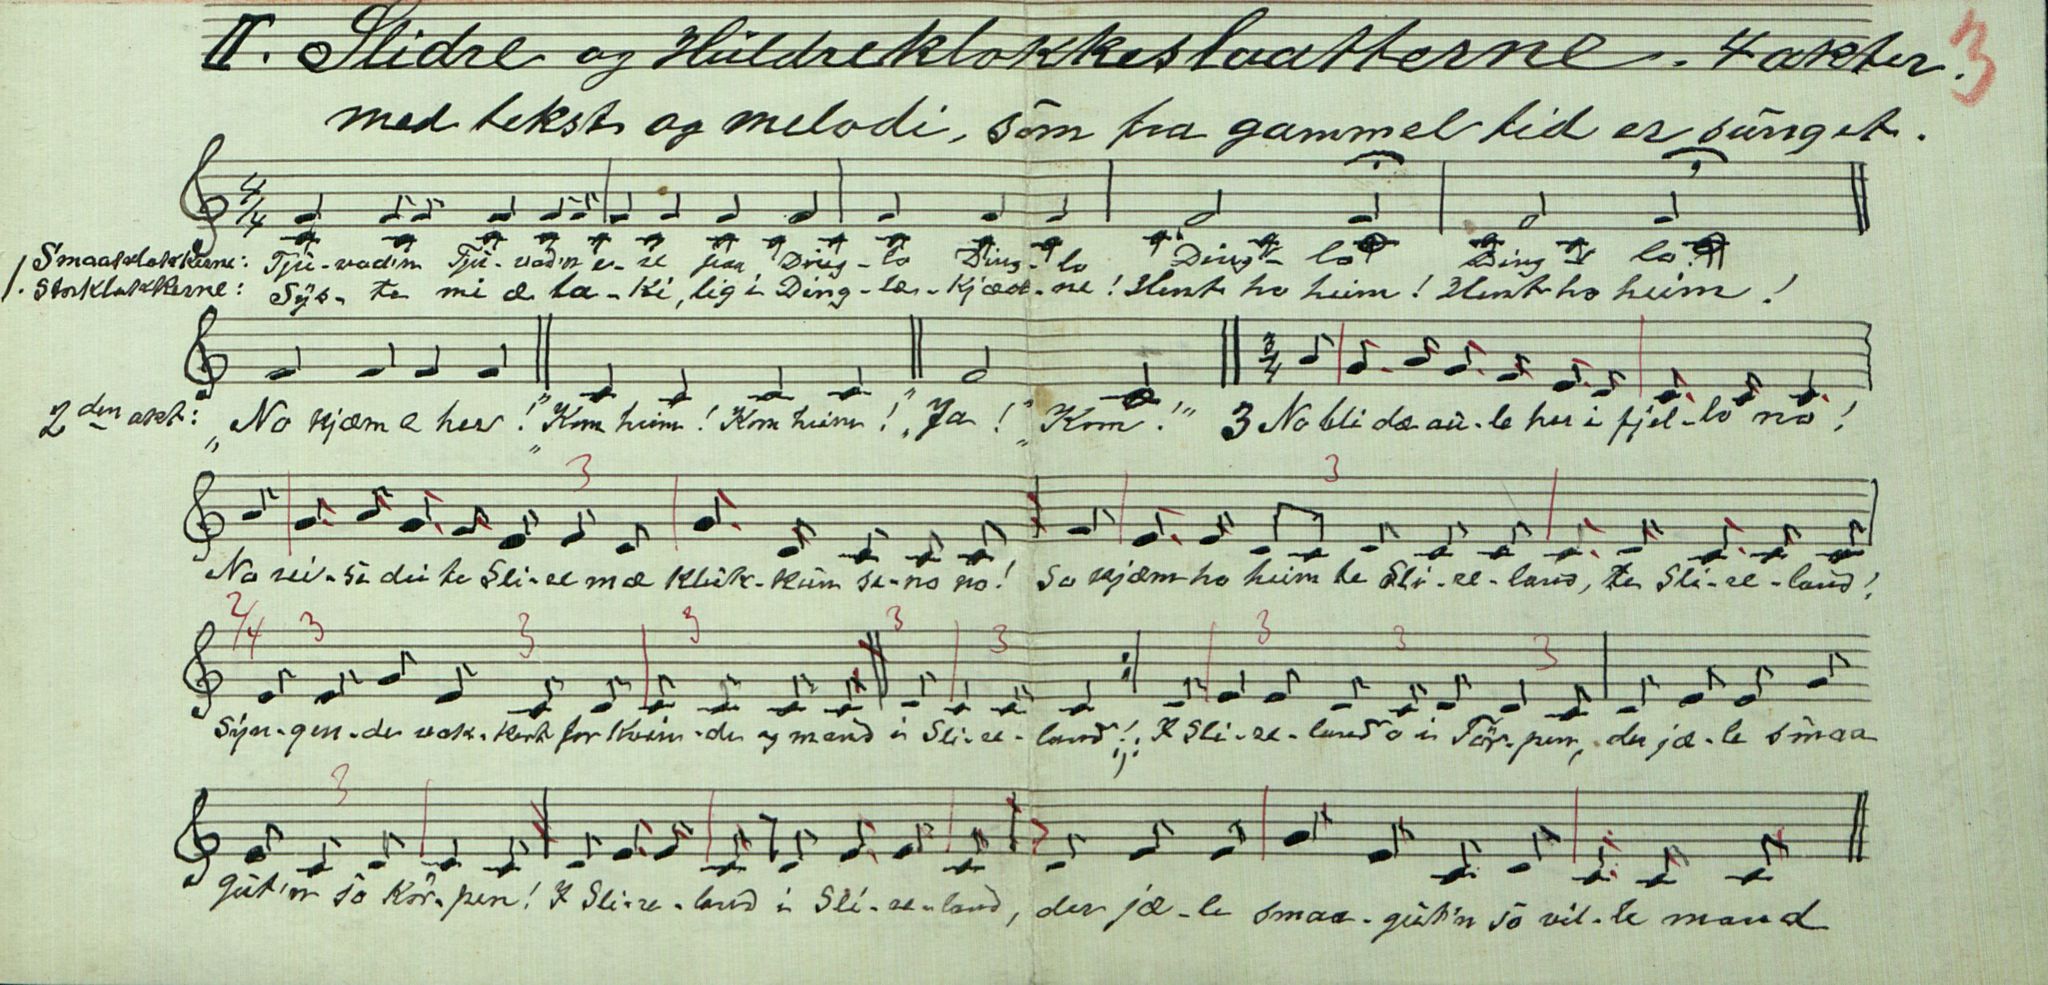 II. Slidre og Huldreklokkeslaatterne. 4 akter. 3
med tekst og melodi, som fra gammel tid er sunget.
4/4
Smaaklokkerne: Tju-vadn Tju-vadn e-re paa Ding-lo Ding-lo Ding-lo Ding lo
1. Storklokkerne: Sys-ter mi æ la-ki, lig i Ding-læ-kjæd-ne! Hent ho heim! Hent ho heim!
3/4
2den akt: "No kjæm e her!" "Kom heim! Kom heim!" "Ja!" "Kom!" 3 No bli dæ au-le her i fjel-lo no!
3 3
No rei-se dei te Sli-re mæ Kluk-kum si-no no! So kjæm ho heim te Sli-re-land, te Sli-re-land!
2/4 3 3 3 3 3 3 3 3
Syn-gen-de vak-kert for Kvin-der og mand i Sli-re-land! I Sli-re-land o i Tor-pen, der jæ-le smaa
3
gut'n so Kor-pen! I Sli-re-land i Sli-re-land, der jæ-le smaa-gut'n so vil-le mand